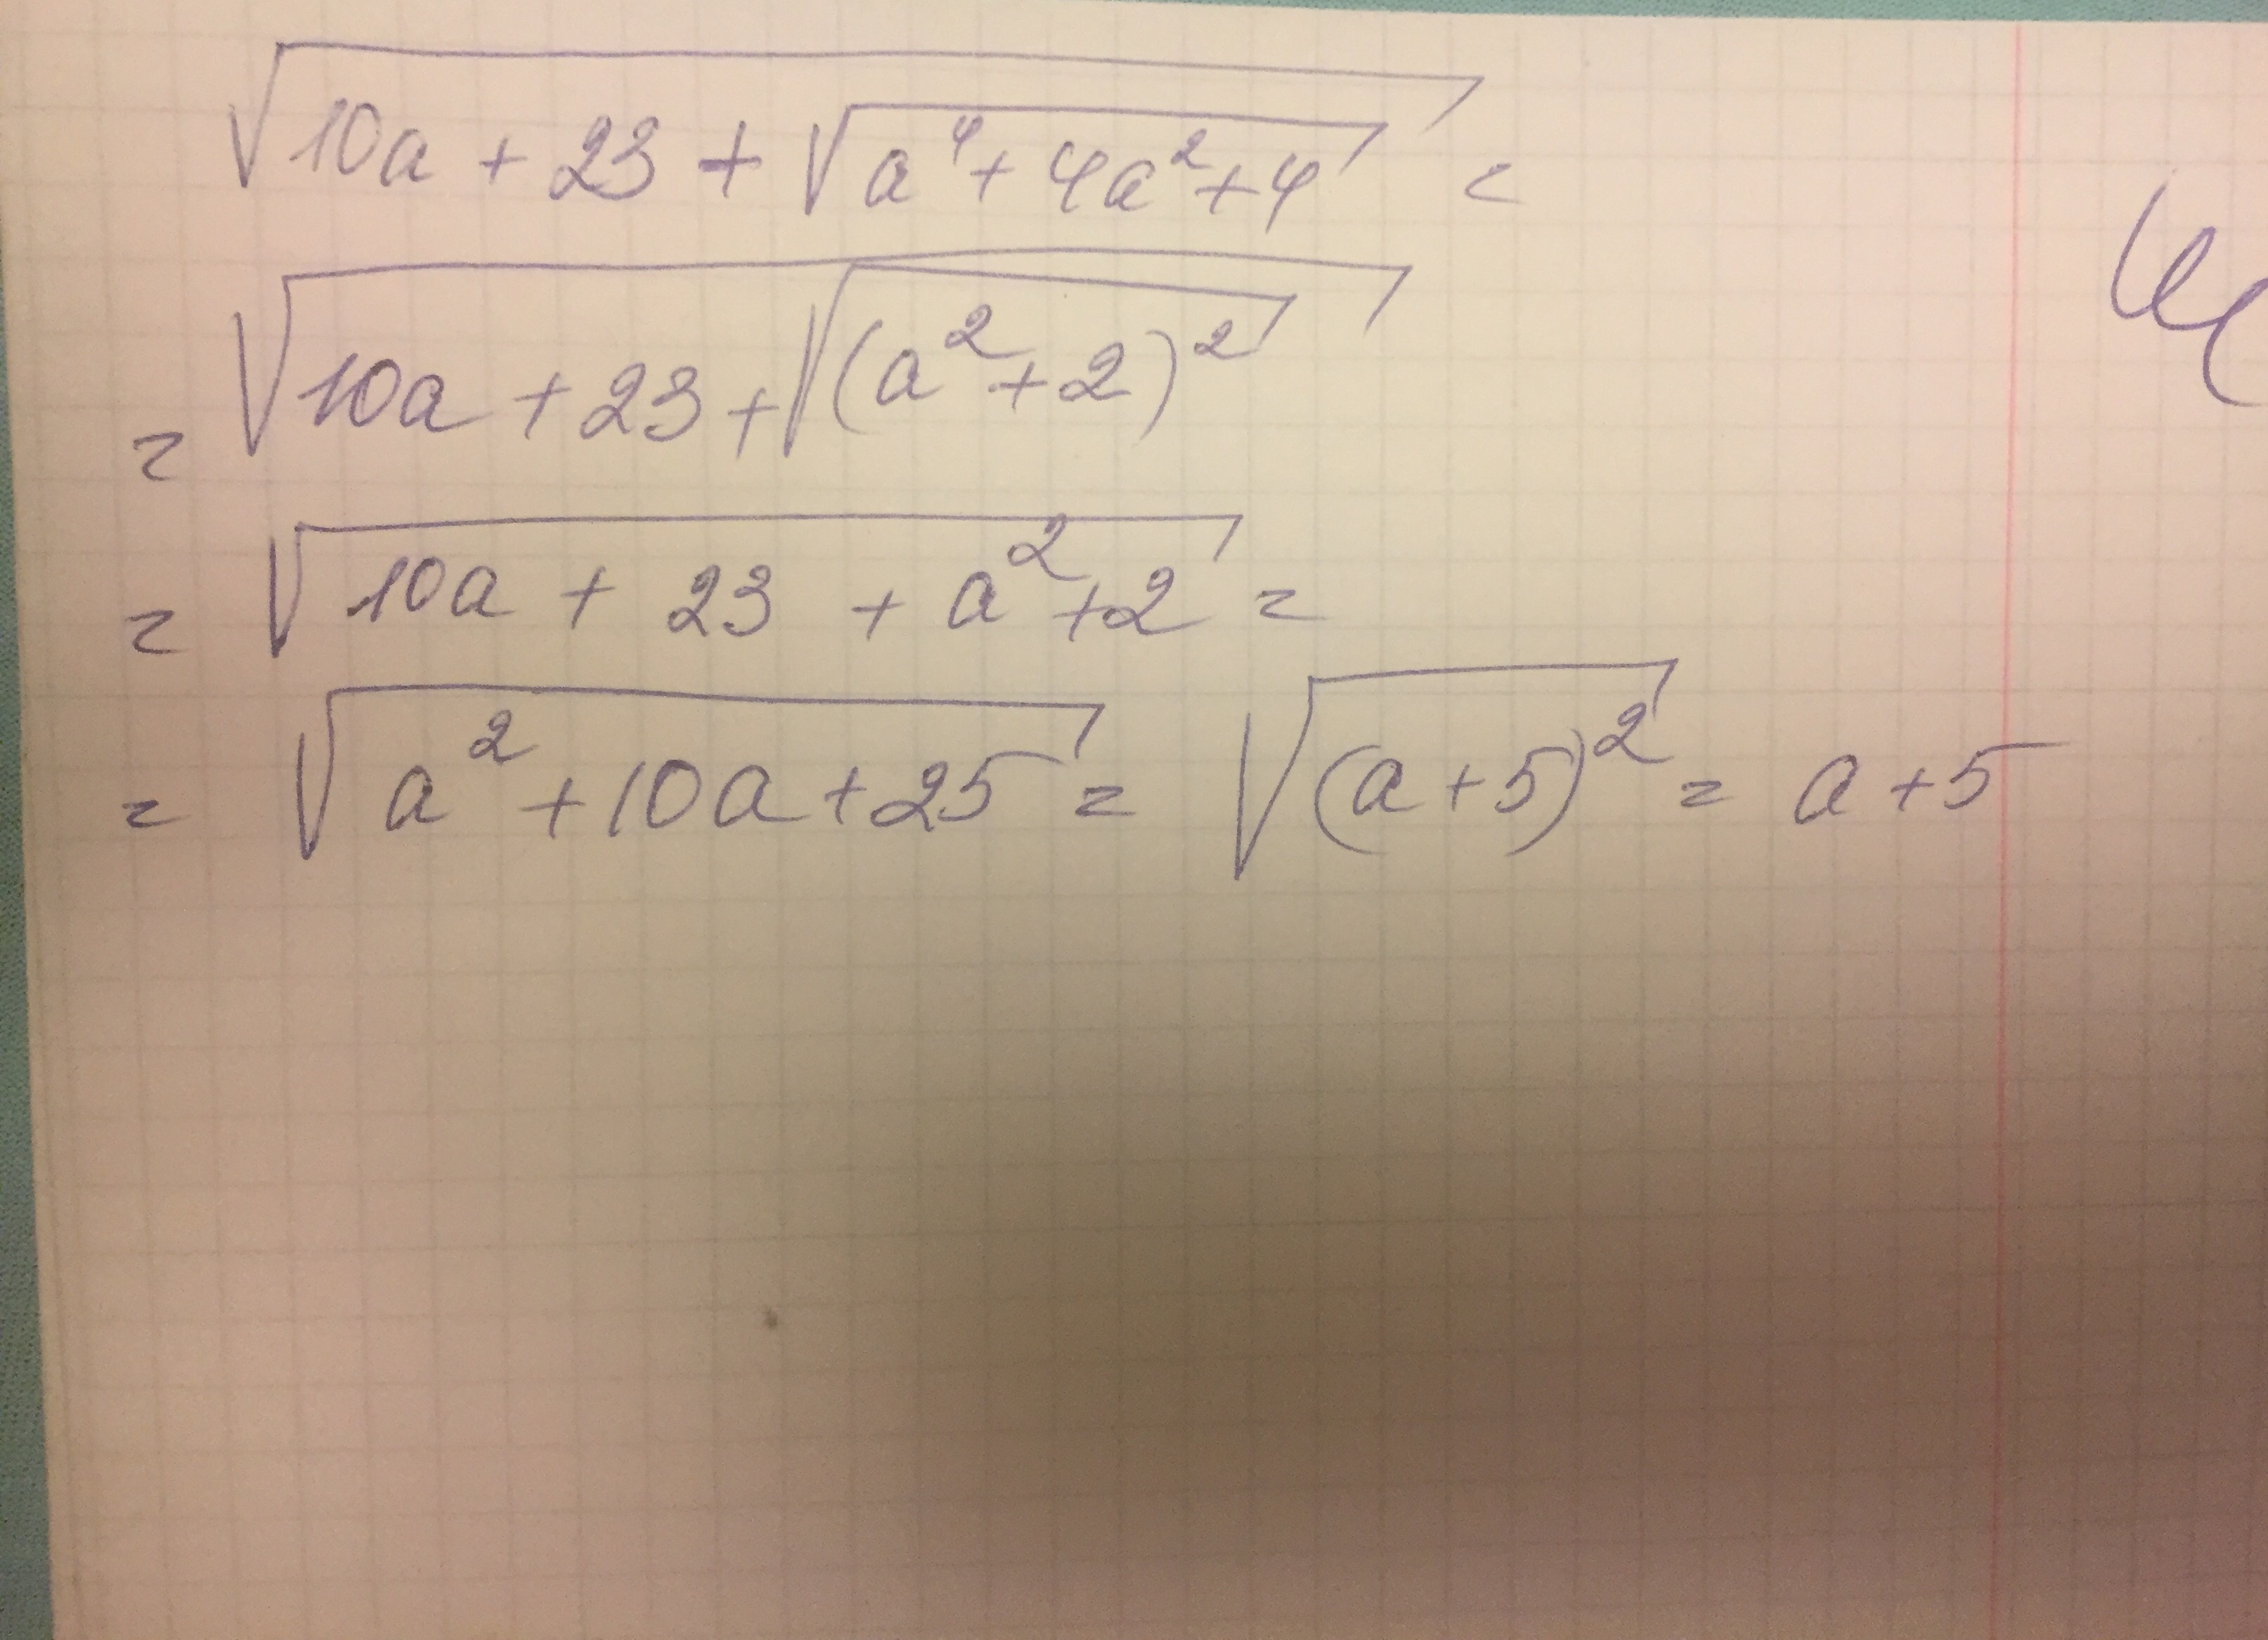 √(10a + 23 + √(a⁴ + 4a² + 4)) =
= √(10a + 23 + √((a² + 2)²))
= √(10a + 23 + a² + 2) =
= √(a² + 10a + 25) = √((a + 5)²) = a + 5